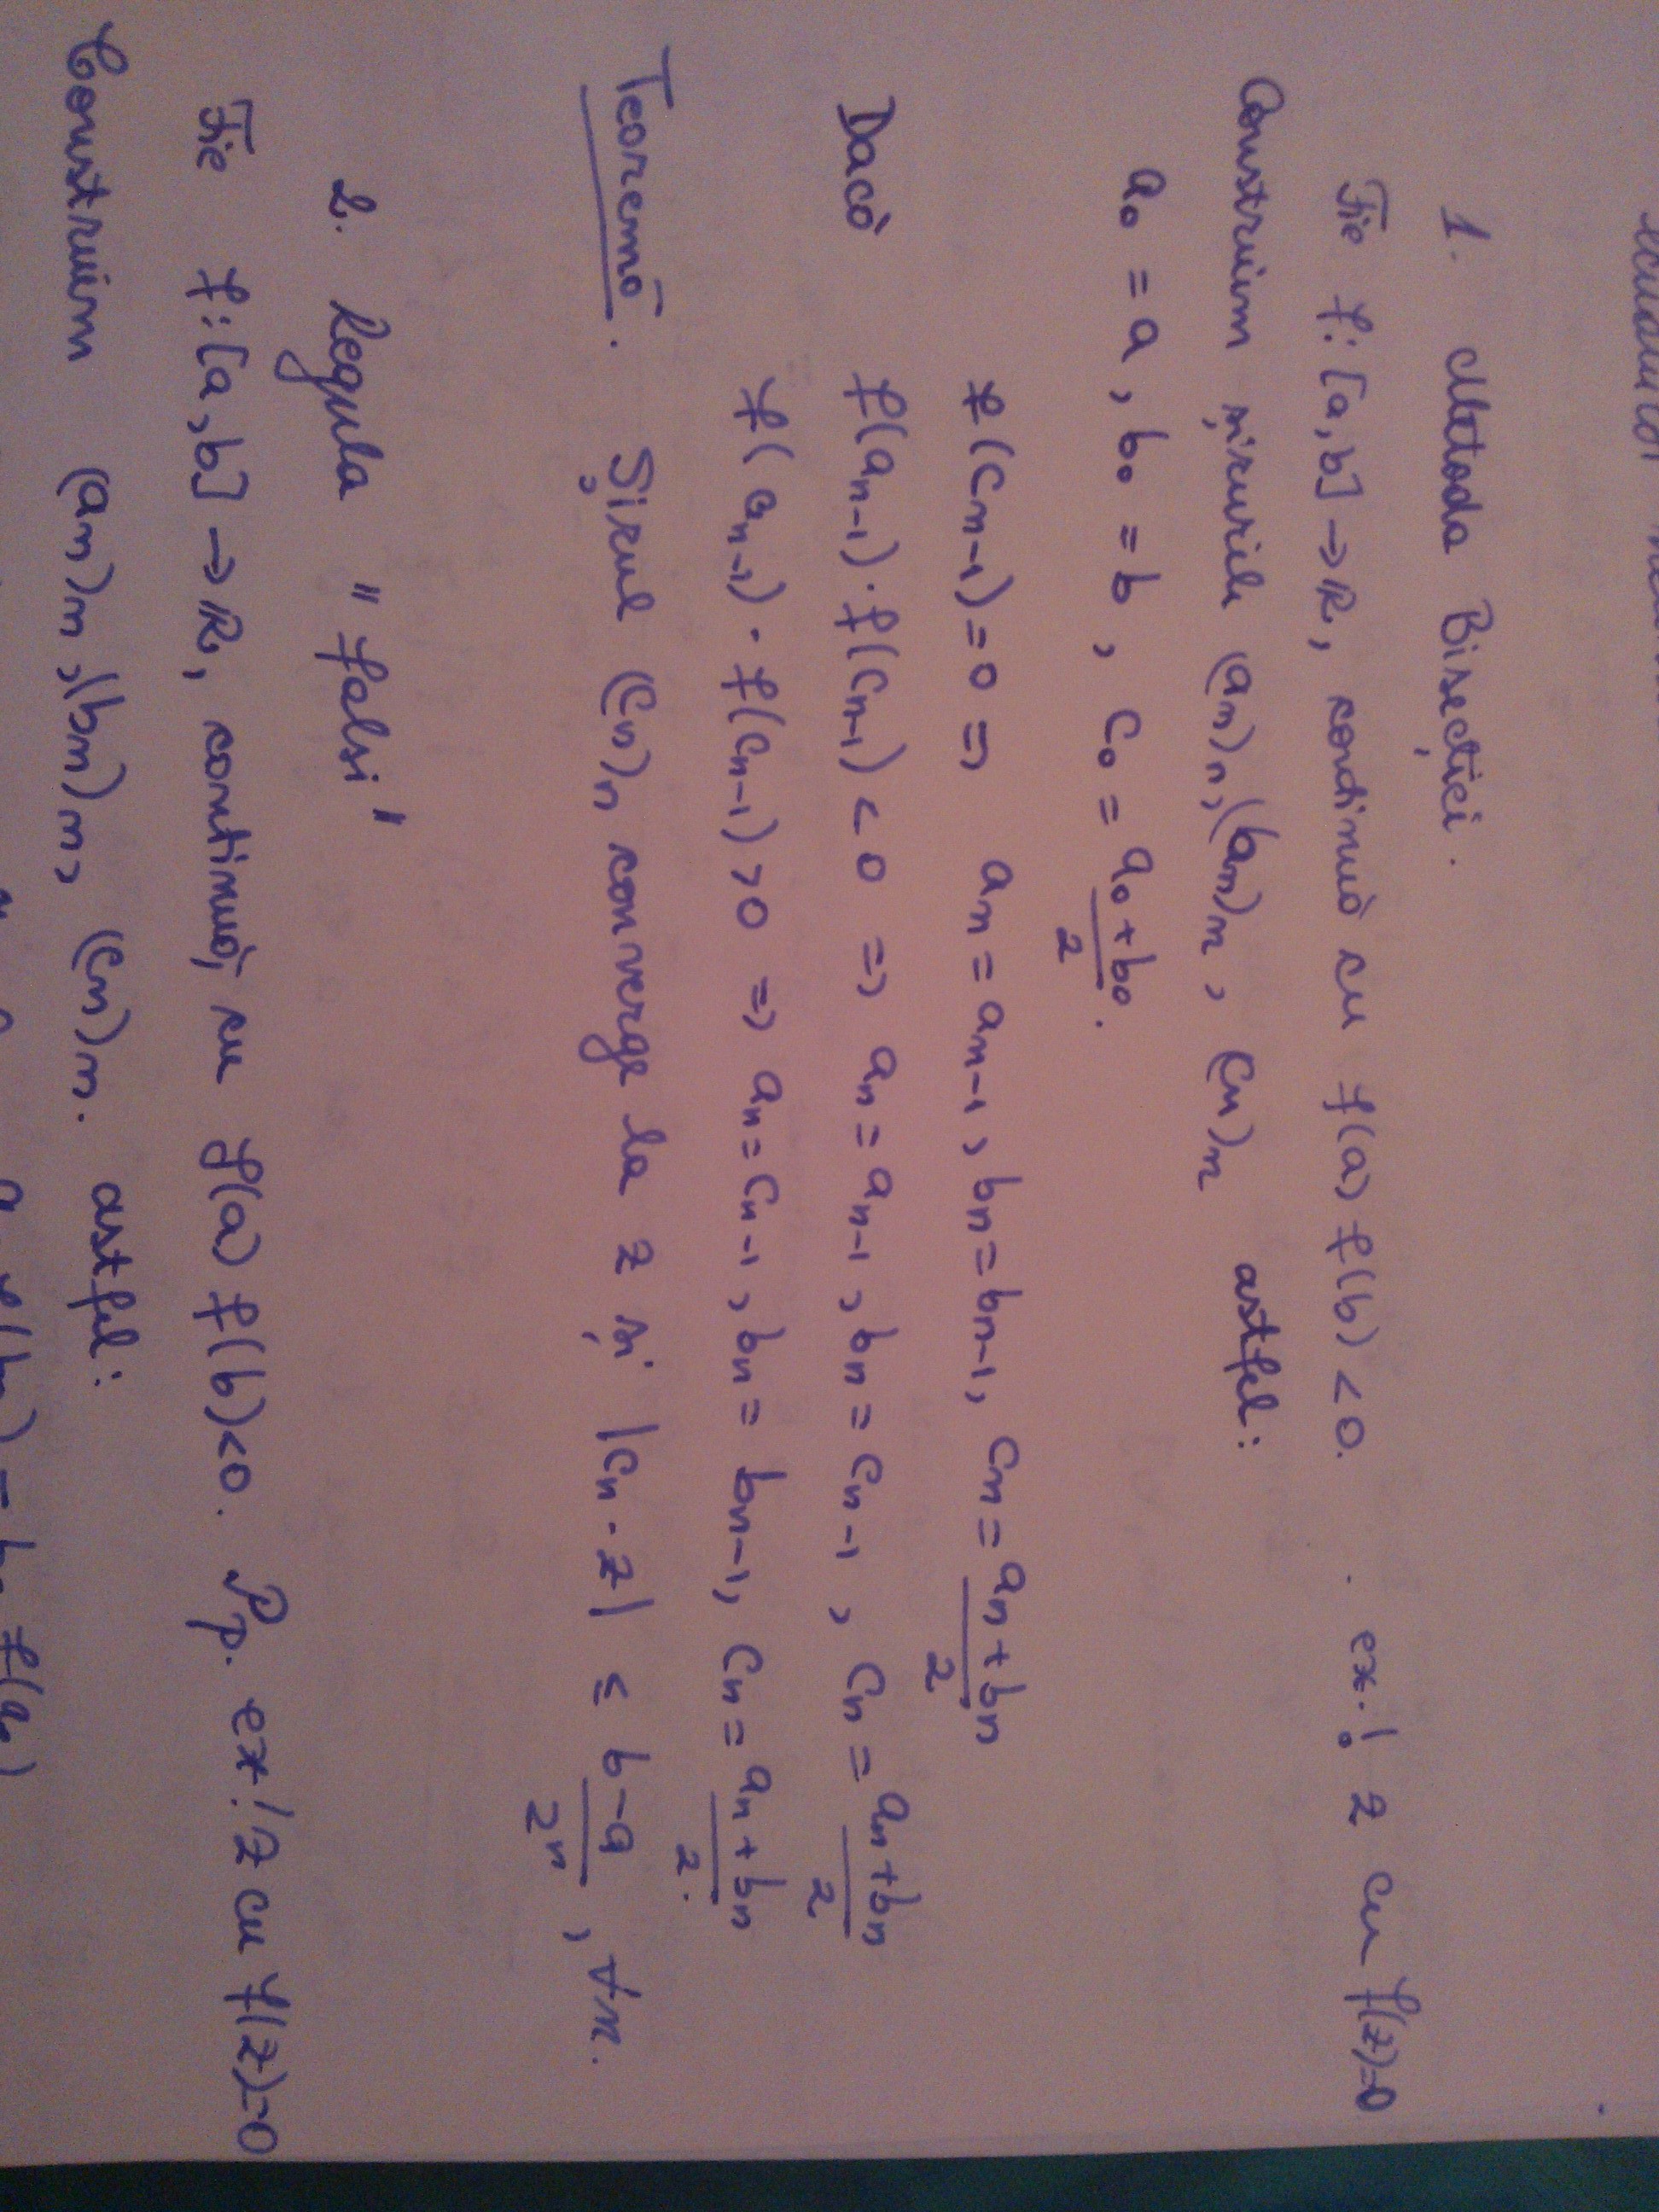 1. Metoda Bisecției.
Fie f: [a,b] → R, continuă cu f(a) f(b) < 0. ex.! z cu f(z)=0
Construim șirurile (an)n, (bn)n, (cn)n astfel:
a0 = a, b0 = b, c0 = a0 + b0 / 2.
f(cn-1) = 0 => an = an-1, bn = bn-1, cn = an + bn / 2
Dacă f(an-1)·f(cn-1) < 0 => an = an-1, bn = cn-1, cn = an + bn / 2
f(an-1)·f(cn-1) > 0 => an = cn-1, bn = bn-1, cn = an + bn / 2.
Teoremă. Șirul (cn)n converge la z și |cn - z| ≤ b-a / 2^n, ∀n.
2. Regula "falsi"
Fie f: [a,b] → R, continuă, cu f(a) f(b) < 0. Pp. ex.! z cu f(z)=0
Construim (an)n, (bn)n, (cn)n. astfel: